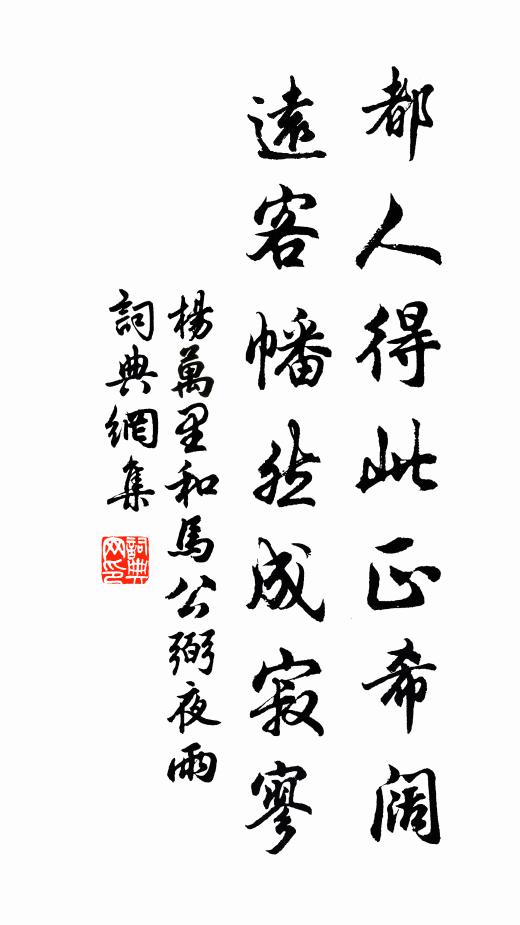 都人得此正希阔
遠客幡然成寂寥
楊萬里和馬公弼夜雨
詞典網集
詞典網印